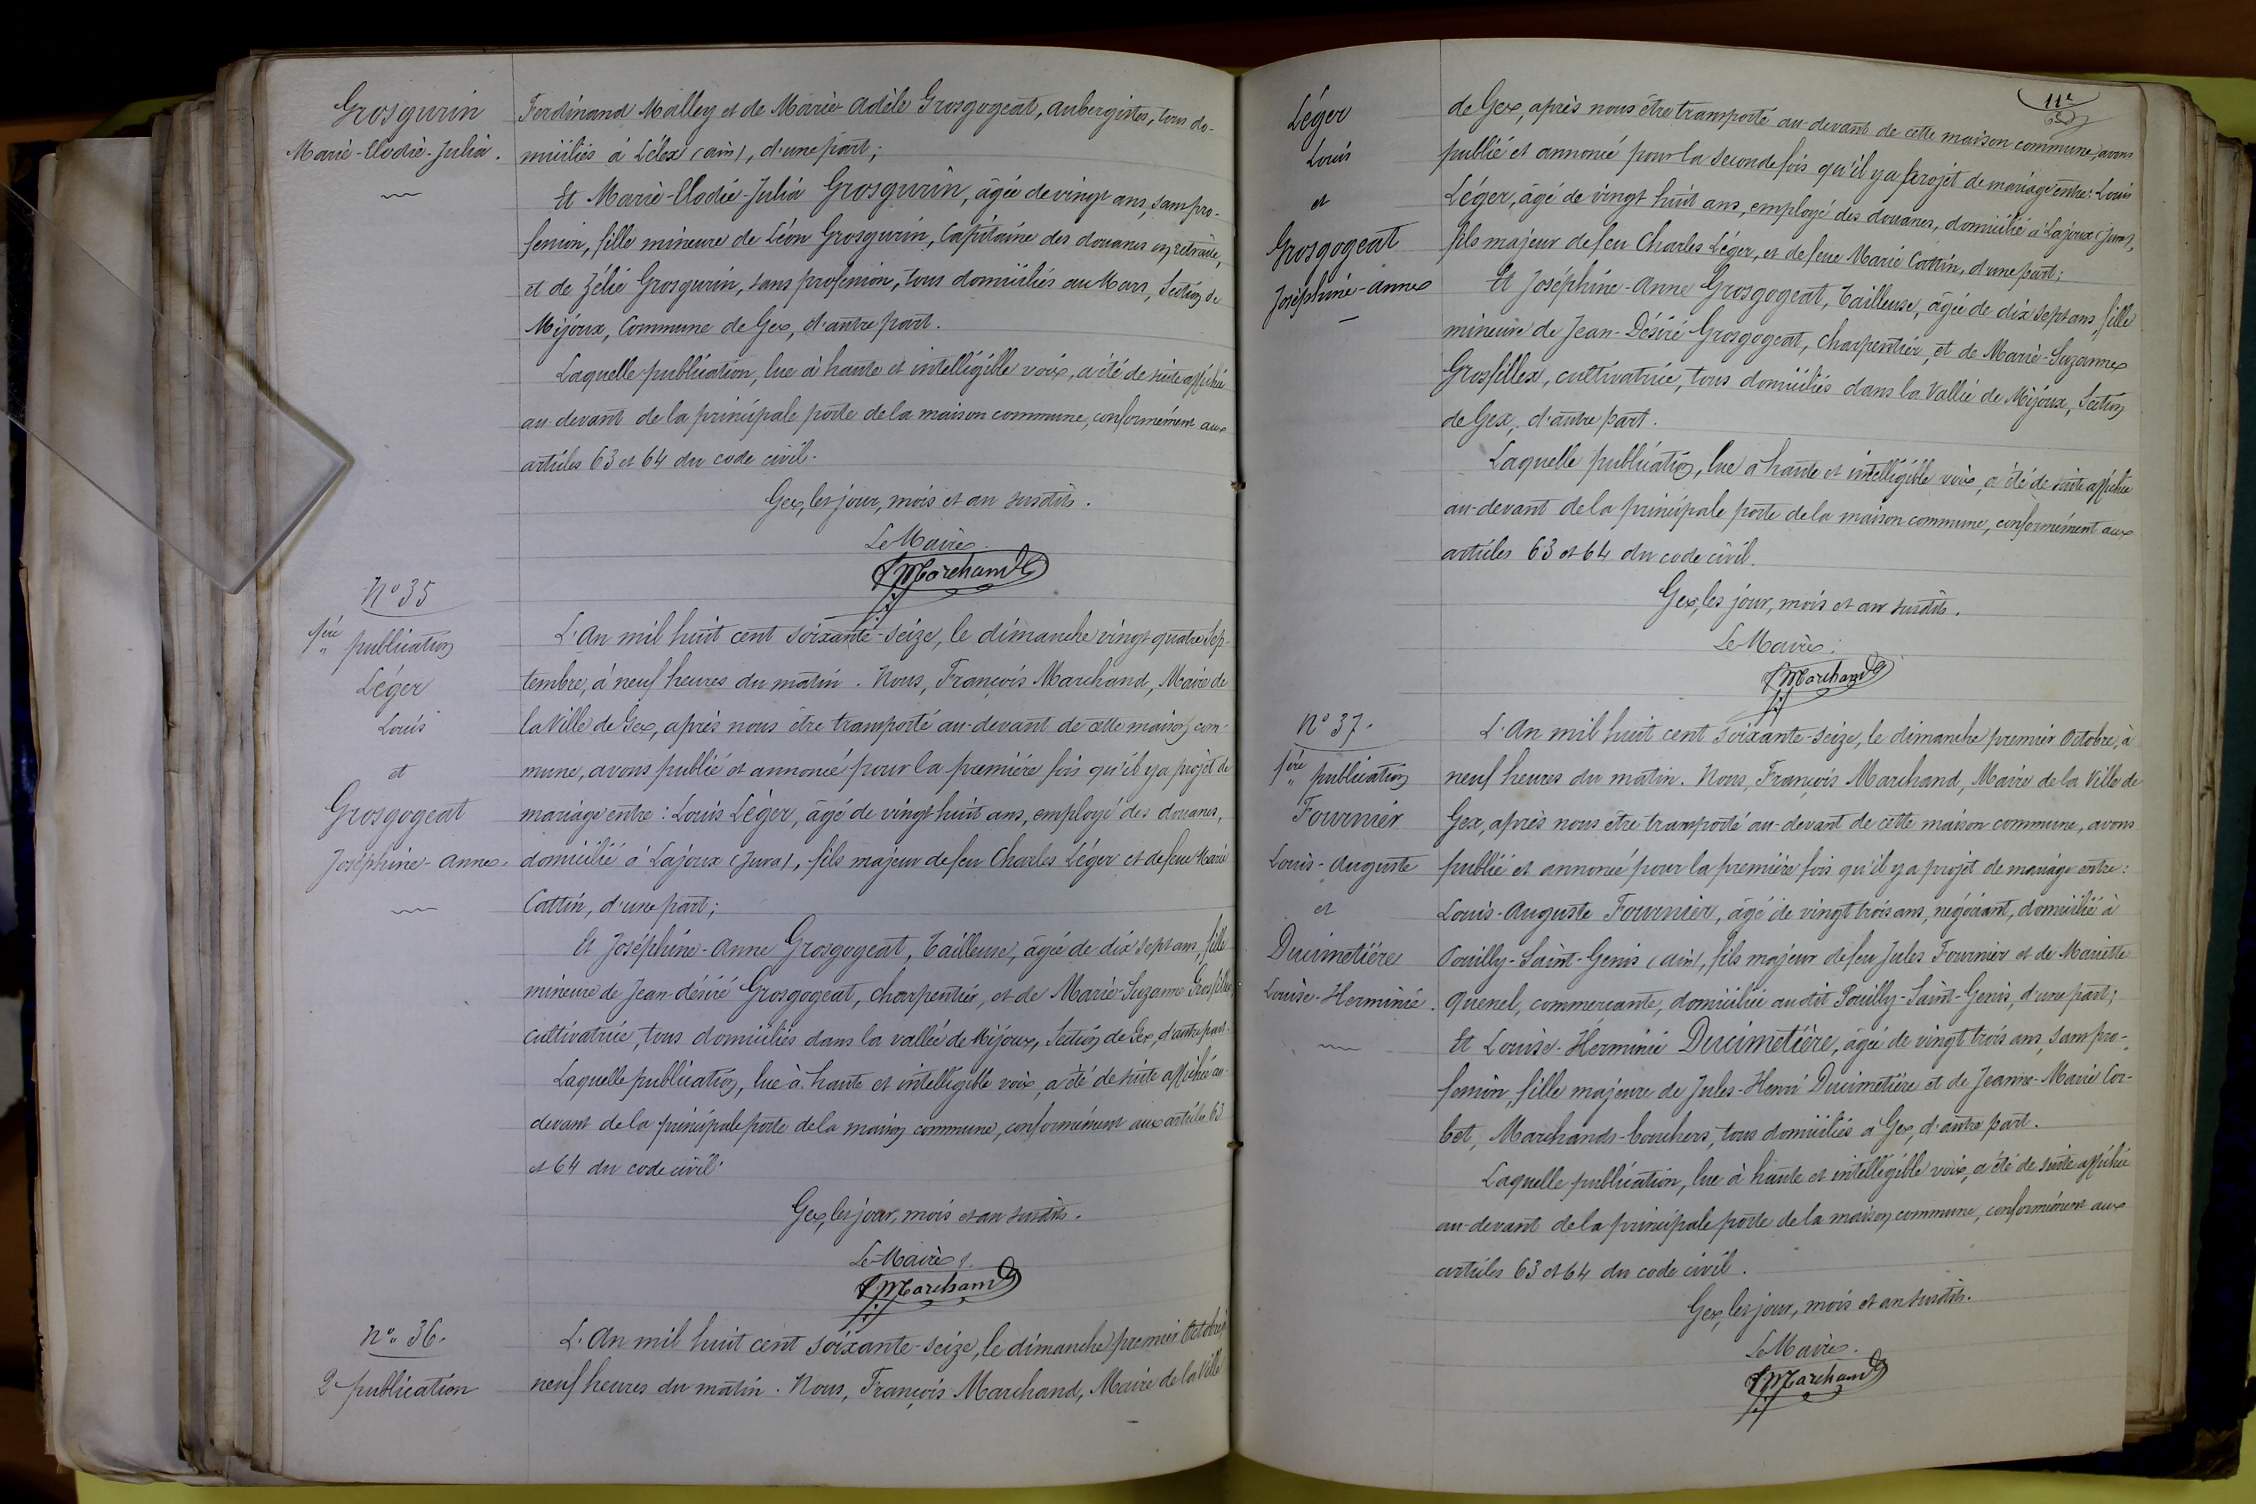 Grosgurin
Marie-Elodie-Julia.
Ferdinand Malley et de Marie Adèle Grosgogeat, aubergistes, tous do-
miciliés à Lélex (ain), d'une part;
Et Marie-Elodie-Julia Grosgurin, âgée de vingt ans, sans pro-
fession, fille mineure de Léon Grosgurin, Capitaine des douanes en retraite,
et de Zélie Grosgurin, sans profession, tous domiciliés au Mars, Section de
Mijoux, Commune de Gex, d'autre part.
Laquelle publication, lue à haute et intelligible voix, a été de suite affichée
au-devant de la principale porte de la maison commune, conformément aux
articles 63 et 64 du code civil.
Gex, les jour, mois et an susdits.
Le Maire
FMarchand
N° 35
1ère publication
Léger
Louis
et
Grosgogeat
Joséphine-Anne.
L'An mil huit cent soixante-seize, le dimanche vingt-quatre Sep-
tembre, à neuf heures du matin. Nous, François Marchand, Maire de
la Ville de Gex, après nous être transporté au-devant de cette maison com-
mune, avons publié et annoncé pour la première fois qu'il y a projet de
mariage entre: Louis Léger, âgé de vingt-huit ans, employé des douanes,
domicilié à Lajoux (Jura), fils majeur de feu Charles Léger et de feue Marie
Cattin, d'une part;
Et Joséphine-Anne Grosgogeat, Tailleuse, âgée de dix sept ans, fille
mineure de Jean-désiré Grosgogeat, charpentier, et de Marie-Suzanne Grosfillex,
cultivatrice, tous domiciliés dans la vallée de Mijoux, Section de Gex, d'autre part.
Laquelle publication, lue à haute et intelligible voix, a été de suite affichée au-
devant de la principale porte de la maison commune, conformément aux articles 63
et 64 du code civil.
Gex, les jour, mois et an susdits.
Le Maire
FMarchand
N° 36.
2e publication
L'An mil huit cent soixante-seize, le dimanche premier Octobre, à
neuf heures du matin. Nous, François Marchand, Maire de la Ville
11e
Léger
Louis
et
Grosgogeat
Joséphine-Anne
de Gex, après nous être transporté au-devant de cette maison commune, avons
publié et annoncé pour la seconde fois qu'il y a projet de mariage entre: Louis
Léger, âgé de vingt huit ans, employé des douanes, domicilié à Lajoux (Jura),
fils majeur de feu Charles Léger, et de feue Marie Cattin, d'une part;
Et Joséphine-Anne Grosgogeat, Tailleuse, âgée de dix sept ans, fille
mineure de Jean-Désiré Grosgogeat, charpentier, et de Marie-Suzanne
Grosfillex, cultivatrice, tous domiciliés dans la Vallée de Mijoux, Section
de Gex, d'autre part.
Laquelle publication, lue à haute et intelligible voix, a été de suite affichée
au-devant de la principale porte de la maison commune, conformément aux
articles 63 et 64 du code civil.
Gex, les jour, mois et an susdits.
Le Maire.
FMarchand
N° 37.
1ère publication
Fournier
Louis-Auguste
et
Ducimetière
Louise-Herminie.
L'An mil huit cent soixante-seize, le dimanche premier Octobre, à
neuf heures du matin. Nous, François Marchand, Maire de la Ville de
Gex, après nous être transporté au-devant de cette maison commune, avons
publié et annoncé pour la première fois qu'il y a projet de mariage entre:
Louis-Auguste Fournier, âgé de vingt trois ans, négociant, domicilié à
Pouilly-Saint-Genis (ain), fils majeur de feu Jules Fournier et de Mariette
Quenel, commerçante, domiciliée au dit Pouilly-Saint-Genis, d'une part;
Et Louise-Herminie Ducimetière, âgée de vingt trois ans, sans pro-
fession, fille majeure de Jules-Henri Ducimetière et de Jeanne-Marie Cor-
bet, Marchands-bouchers, tous domiciliés à Gex, d'autre part.
Laquelle publication, lue à haute et intelligible voix, a été de suite affichée
au-devant de la principale porte de la maison commune, conformément aux
articles 63 et 64 du code civil.
Gex, les jour, mois et an susdits.
Le Maire.
FMarchand